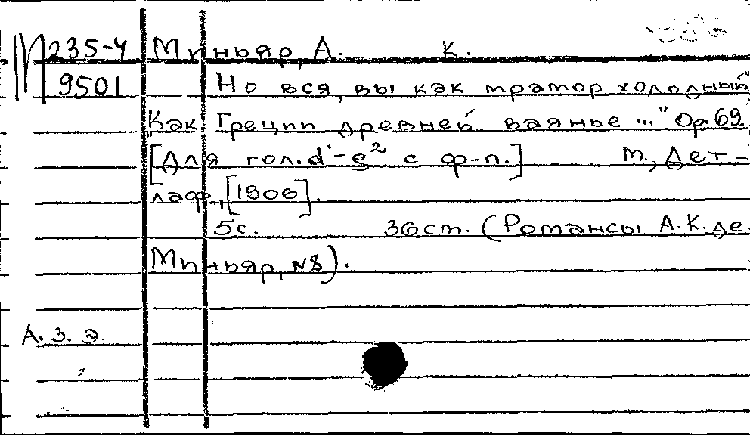 П 235-4 Миньяр, А. К.
9501 Но вся, вы как мрамор холодный
Как Греции древней ваянье ..." Ор 69
[Для гол. d'-g² с ф-п.] М, Дет-
лаф, [1906].
5с. 36ст. (Романсы А.К. де
Миньяр, №8).
А. З. Э.